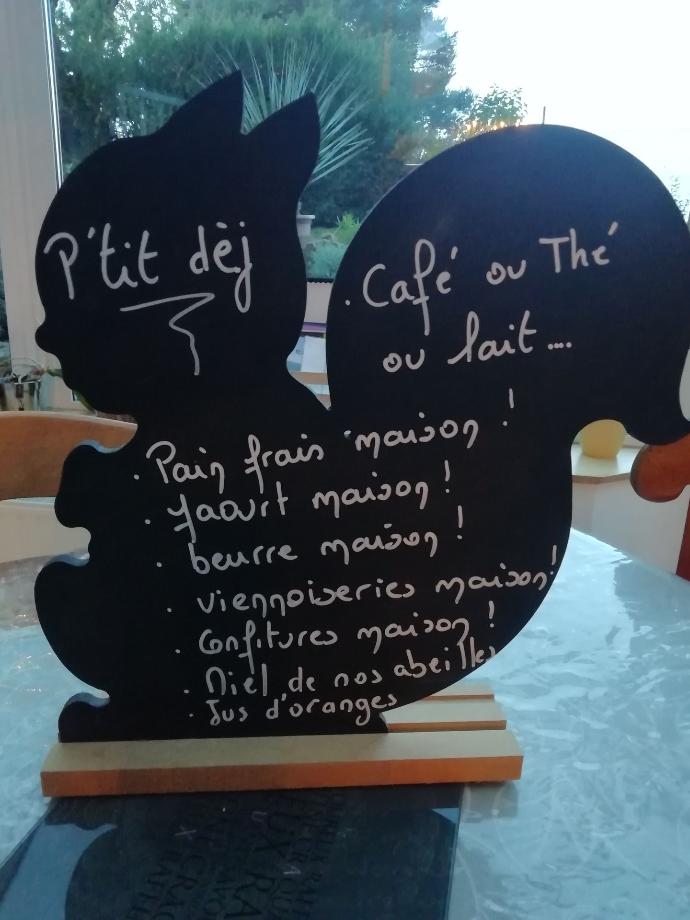 P'tit dèj
. Café ou Thé
ou lait ....
. Pain frais maison !
. yaourt maison !
. beurre maison !
. viennoiseries maison !
. Confitures maison !
. Miel de nos abeilles
. Jus d'oranges